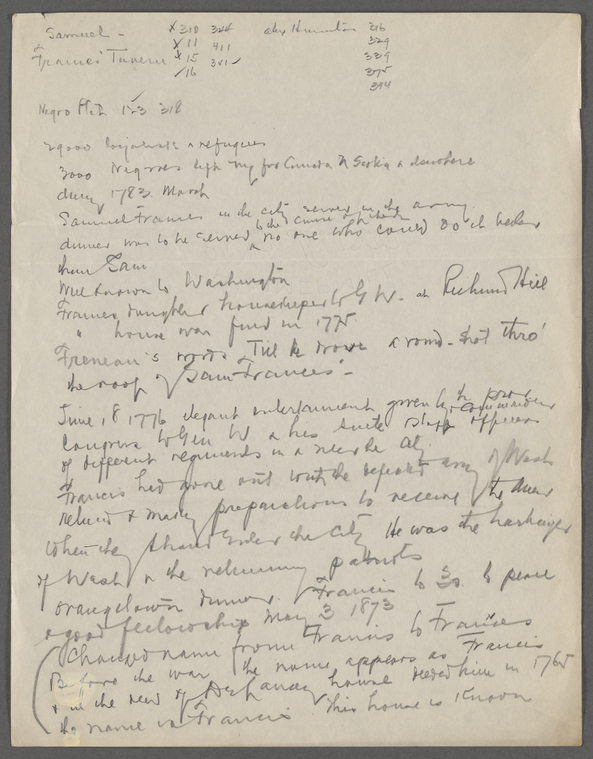 Samuel - x 310 324 alex Hamilton 316
Frances Tavern x 11 411 329
x 15 321 339
16 375
394
Negro Plot 123 318
29000 loyalists & refugees
3000 Negroes left NY for Canada N Scotia & elsewhere
1783. March
Samuel Frances in the city served in the army.
dinner was to be served no one who could do it better
than Sam
Well known to Washington
Frances daughter housekeeper to G W. at Richmond Hill
" house was fired in 1775.
Freneau's words "Till he drove a round-shot thro'
the roof of Sam Frances'-
June 18 1776 elegant entertainment given by the prov
Congress to Gen W & his suite & commanders
Staff officers
of different regiments in & near the city
Francis had gone out with the defeated army of Wash
preparations to receive the
when they should enter the city He was the harbinger
of Wash & the returning patriots
orangetown dinner. Francis to 30. to peace
& good fellowship May 3 1873
Changed name from Francis to Frances
Before the war, the name appears as Francis
& in the deed of DeLancey house deeded him in 1765
the name is Francis. This house is known